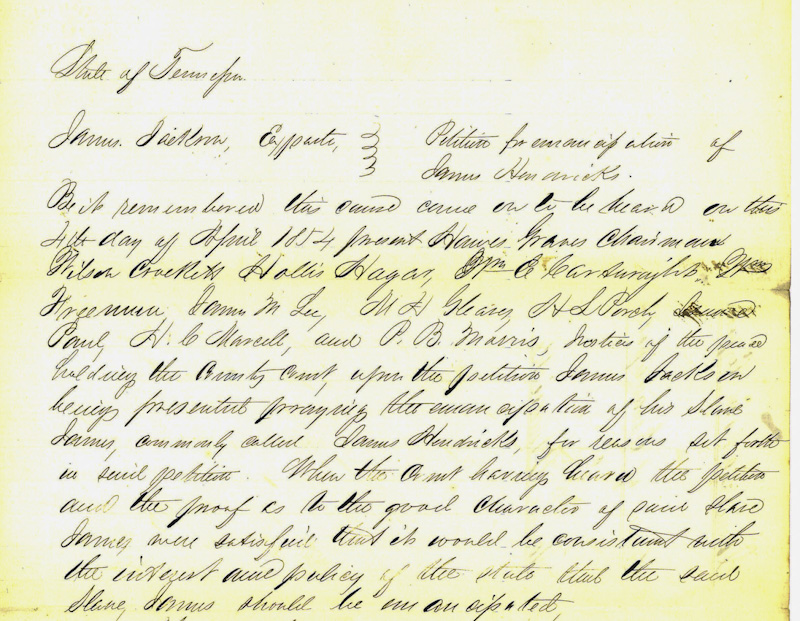 State of Tennessee
James Jackson, Exparte, } Petition for emancipation of
James Hendricks.
Be it remembered this cause came on to be heard on this
4th day of April 1854 present Hawes Graves Chairman
Wilson Crockett Hollis Hagar, Wm E Cartwright
Freeman, James M Lee, M H Gleaves, H L Porch,
Paul, H. C Marcell, and P. B. Morris, Justices of the peace
holding the County Court, upon the petition James Jackson
being presented praying the emancipation of his slave
James, commonly called James Hendricks, for reasons set forth
in said petition. When the Court having heard the petition
and the proof as to the good character of said slave
James were satisfied that it would be consistent with
the interest and policy of the state that the said
slave James should be emancipated,